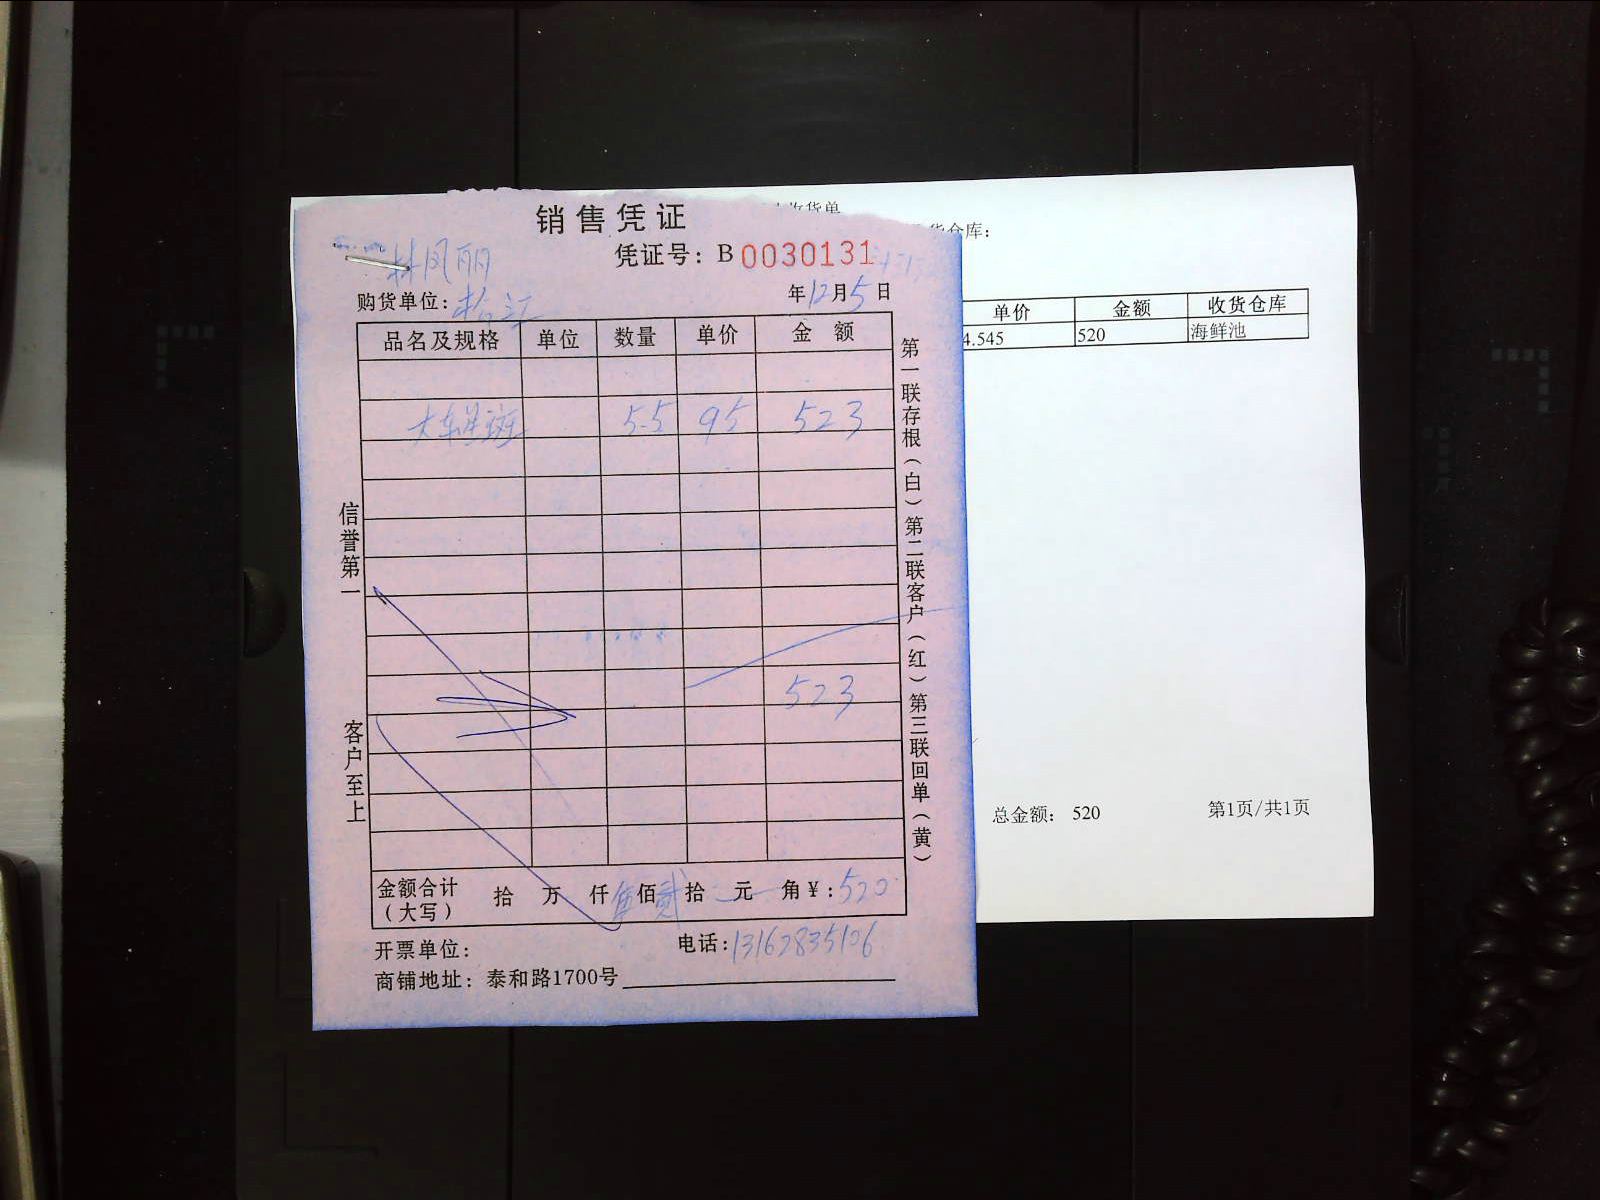 销售凭证
凭证号：B 0030131
林凤丽
购货单位：松江
年12月5日
品名及规格 单位 数量 单价 金额
大东星斑 5.5 95 523
523
金额合计（大写） 拾 万 仟 伍佰 贰拾 元 角￥：520
开票单位： 电话：13162835106
商铺地址：泰和路1700号
信誉第一
客户至上
第一联存根（白）第二联客户（红）第三联回单（黄）
收货单
货仓库：
单价 金额 收货仓库
4.545 520 海鲜池
总金额： 520 第1页/共1页